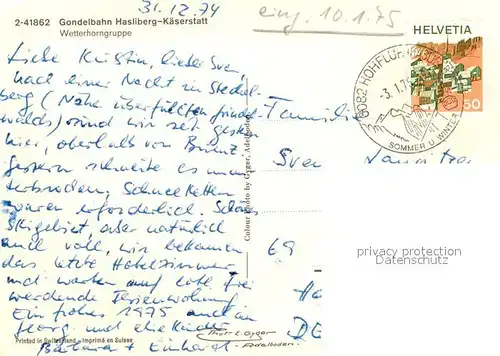 31.12.74
eing. 10.1.75
2-41862 Gondelbahn Hasliberg-Käserstatt
Wetterhorngruppe
HELVETIA
50
6082 HOHFLUH
3.1.75
SOMMER U. WINTER
Liebe Kirstin, lieber Sven,
nach einer Nacht in Stechel-
berg (Nähe überfüllten Grindel-
walds) sind wir seit gestern
hier, oberhalb von Brienz.
Gestern schneite es
Schneeketten
waren erforderlich. Schönes
Skigebiet, aber natürlich
auch voll, wir bekamen
das letzte Hotelzimmer
und warten auf evtl. frei
werdende Ferienwohnung.
Ein frohes 1975 auch an
Georg und die Kinder
Barbara + Einhard
Familie
Sven
69
DE
Colour Photo by Gyger, Adelboden
privacy protection
Datenschutz
Printed in Switzerland - Imprimé en Suisse
Phot. E. Gyger
Adelboden